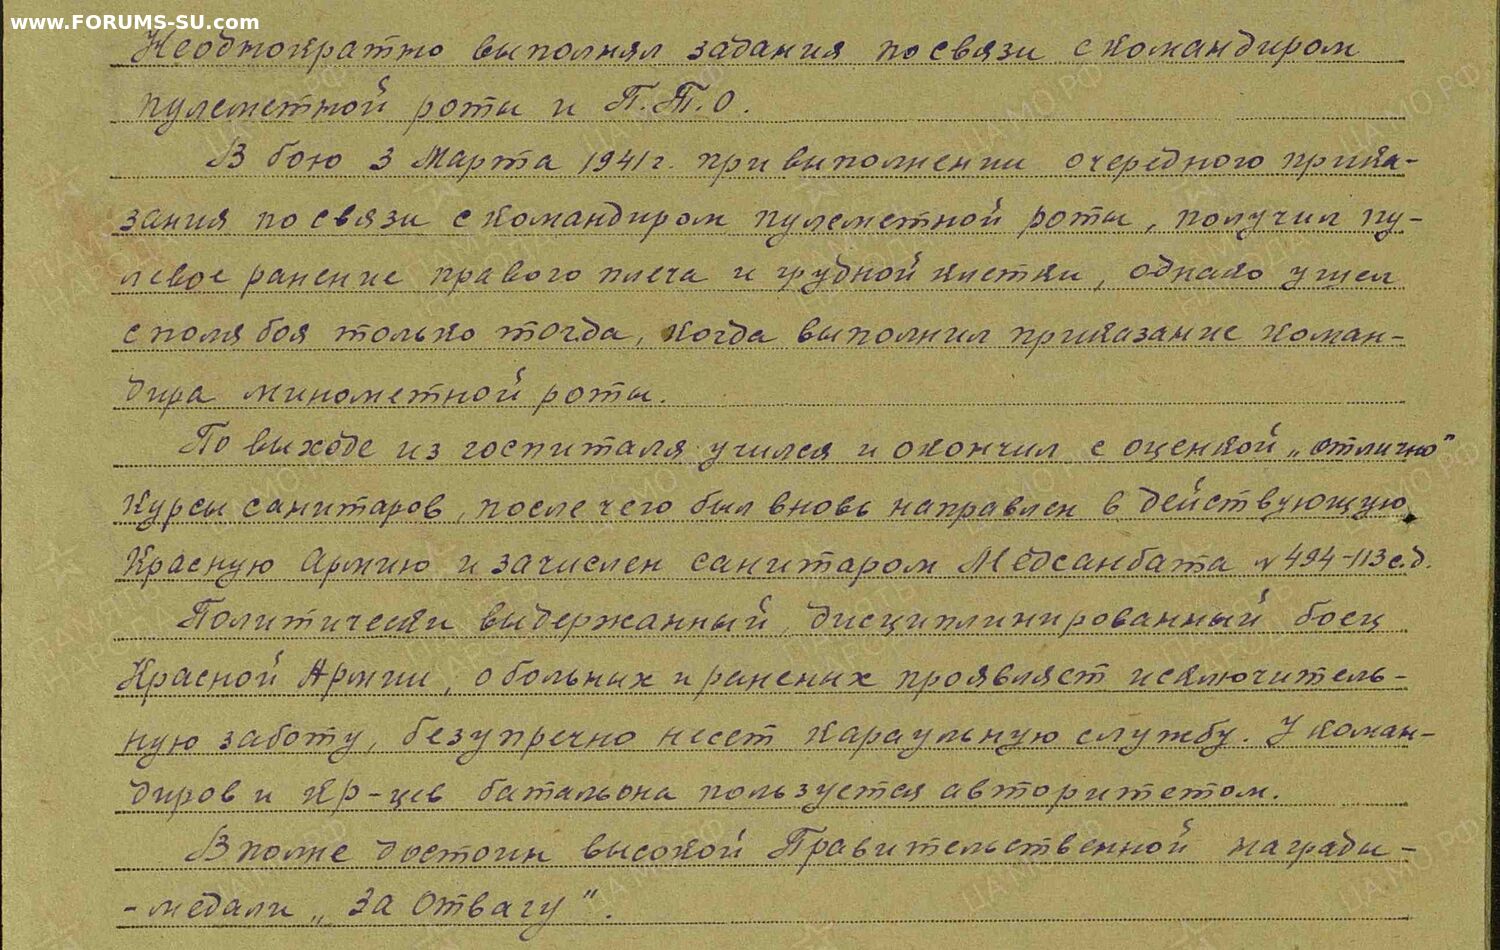 www.FORUMS-SU.com
Неоднократно выполнял задания по связи с командиром
пулеметной роты и П.Т.О.
В бою 3 Марта 1941г. при выполнении очередного прика-
зания по связи с командиром пулеметной роты, получил пу-
левое ранение правого плеча и грудной клетки, однако ушел
с поля боя только тогда, когда выполнил приказание коман-
дира минометной роты.
По выходе из госпиталя учился и окончил с оценкой „отлично"
курсы санитаров, после чего был вновь направлен в действующую
Красную Армию и зачислен санитаром Медсанбата №494-113с.д.
Политически выдержанный, дисциплинированный боец
Красной Армии, о больных и раненых проявляет исключитель-
ную заботу, безупречно несет караульную службу. У коман-
диров и кр-цев батальона пользуется авторитетом.
Вполне достоин высокой Правительственной награды-
-медали „За Отвагу".